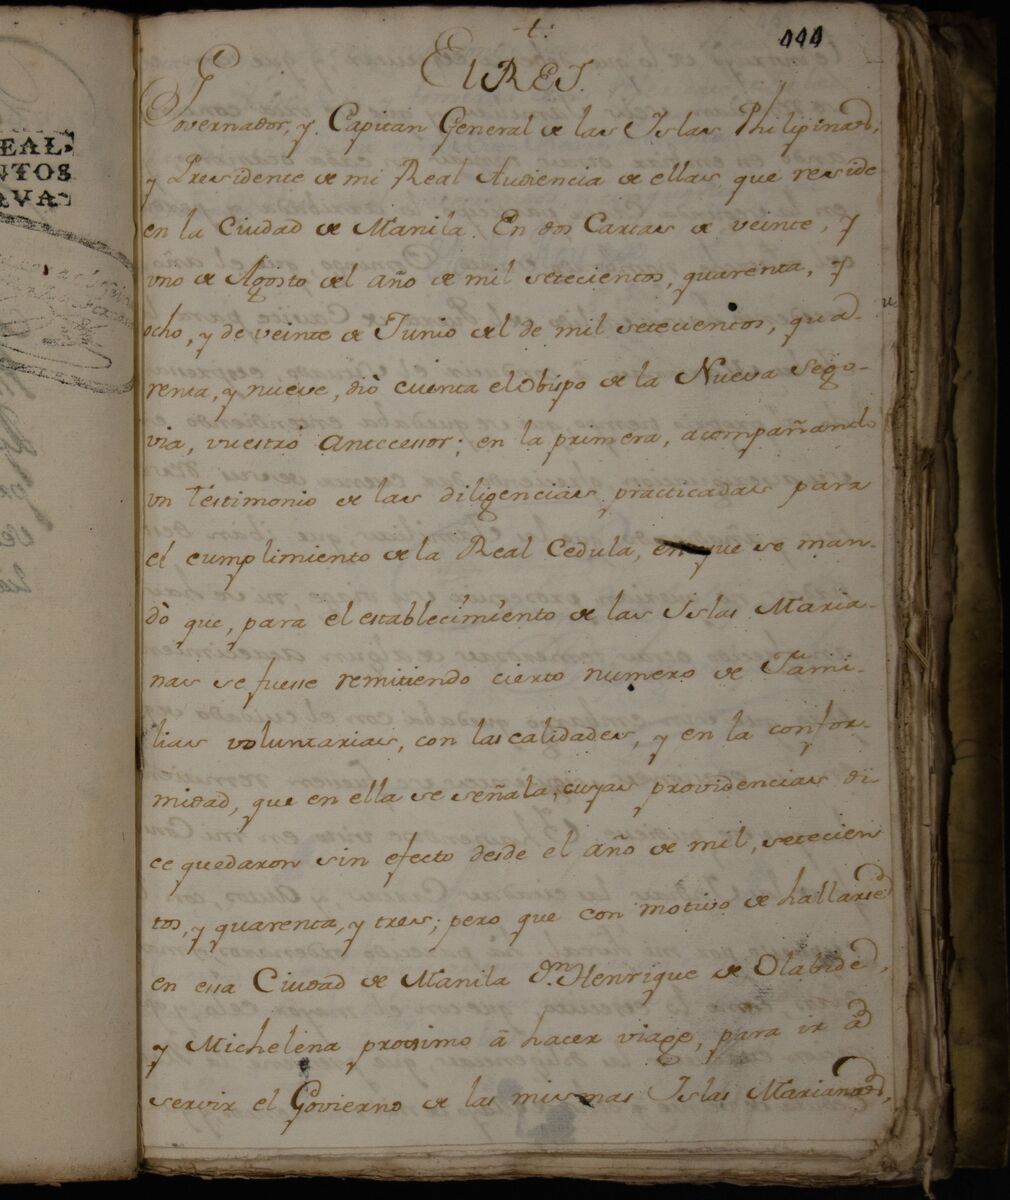 444
t.
El REY.
Governador, y Capitan General de las Islas Philipinas,
y Presidente de mi Real Audiencia de ellas, que reside
en la Ciudad de Manila. En dos Cartas de veinte, y
uno de Agosto del año de mil setecientos, quarenta, y
ocho, y de veinte de Junio del de mil setecientos, qua-
renta, y nueve, diò cuenta el Obispo de la Nueva Sego-
via, vuestro Antecessor; en la primera, acompañando
vn testimonio de las diligencias, practicadas para
el cumplimiento de la Real Cedula, en que se man-
dò que, para el establecimiento de las Islas Maria-
nas se fuesse remitiendo cierto numero de Fami-
lias voluntarias, con las calidades, y en la confor-
midad, que en ella se señala, cuyas providencias di
ce quedaron sin efecto desde el año de mil, setecien
tos, y quarenta, y tres; pero que con motivo de hallarse
en essa Ciudad de Manila Dn. Henrique de Olabide,
y Michelena proximo â hacer viage, para ir â
servir el Govierno de las mismas Islas Marianas,
EAL
NTOS
AVA